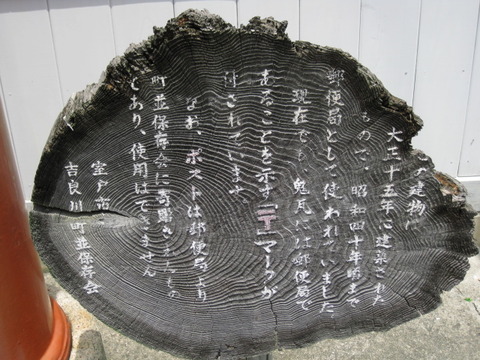 この建物は
大正十五年に建築された
もので、昭和四十年頃まで
郵便局として使われていました
現在でも、鬼瓦には郵便局で
あることを示す「〒」マークが
付されています
なお、ポストは郵便局より
町並保存会に寄贈されたもの
であり、使用はできません
室戸市
吉良川町並保存会